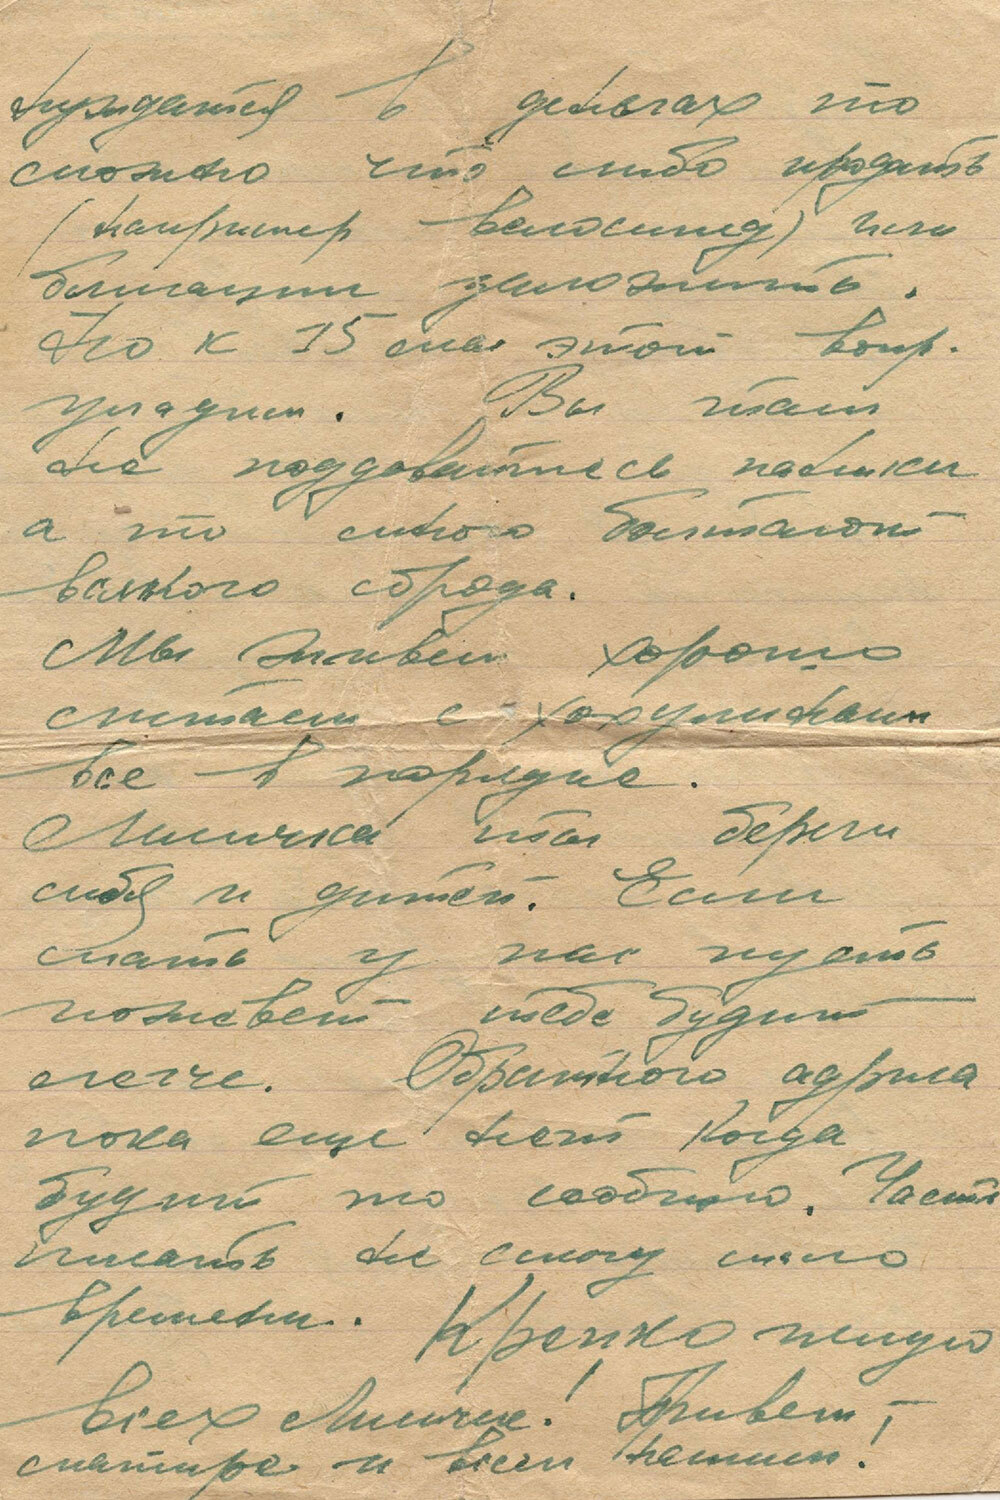 нуждатся в деньгах то
можно что либо продать
(например велосипед) или
блигации заложить.
Но к 15 мая этот вопр.
уладим. Вы там
не поддовайтесь паники
а то много болтают
всякого сброда.
Мы живем хорошо
считаем с
все в порядке.
Лиличка ты береги
себя и дитей. Если
мать у нас пусть
поживет тебе будит
легче. Обратного адриса
пока еще нет когда
будит то сообщю. Часто
писать не смогу мало
времени. Крепко целую
всех Лиличек! Привет
матире и всем нашим!